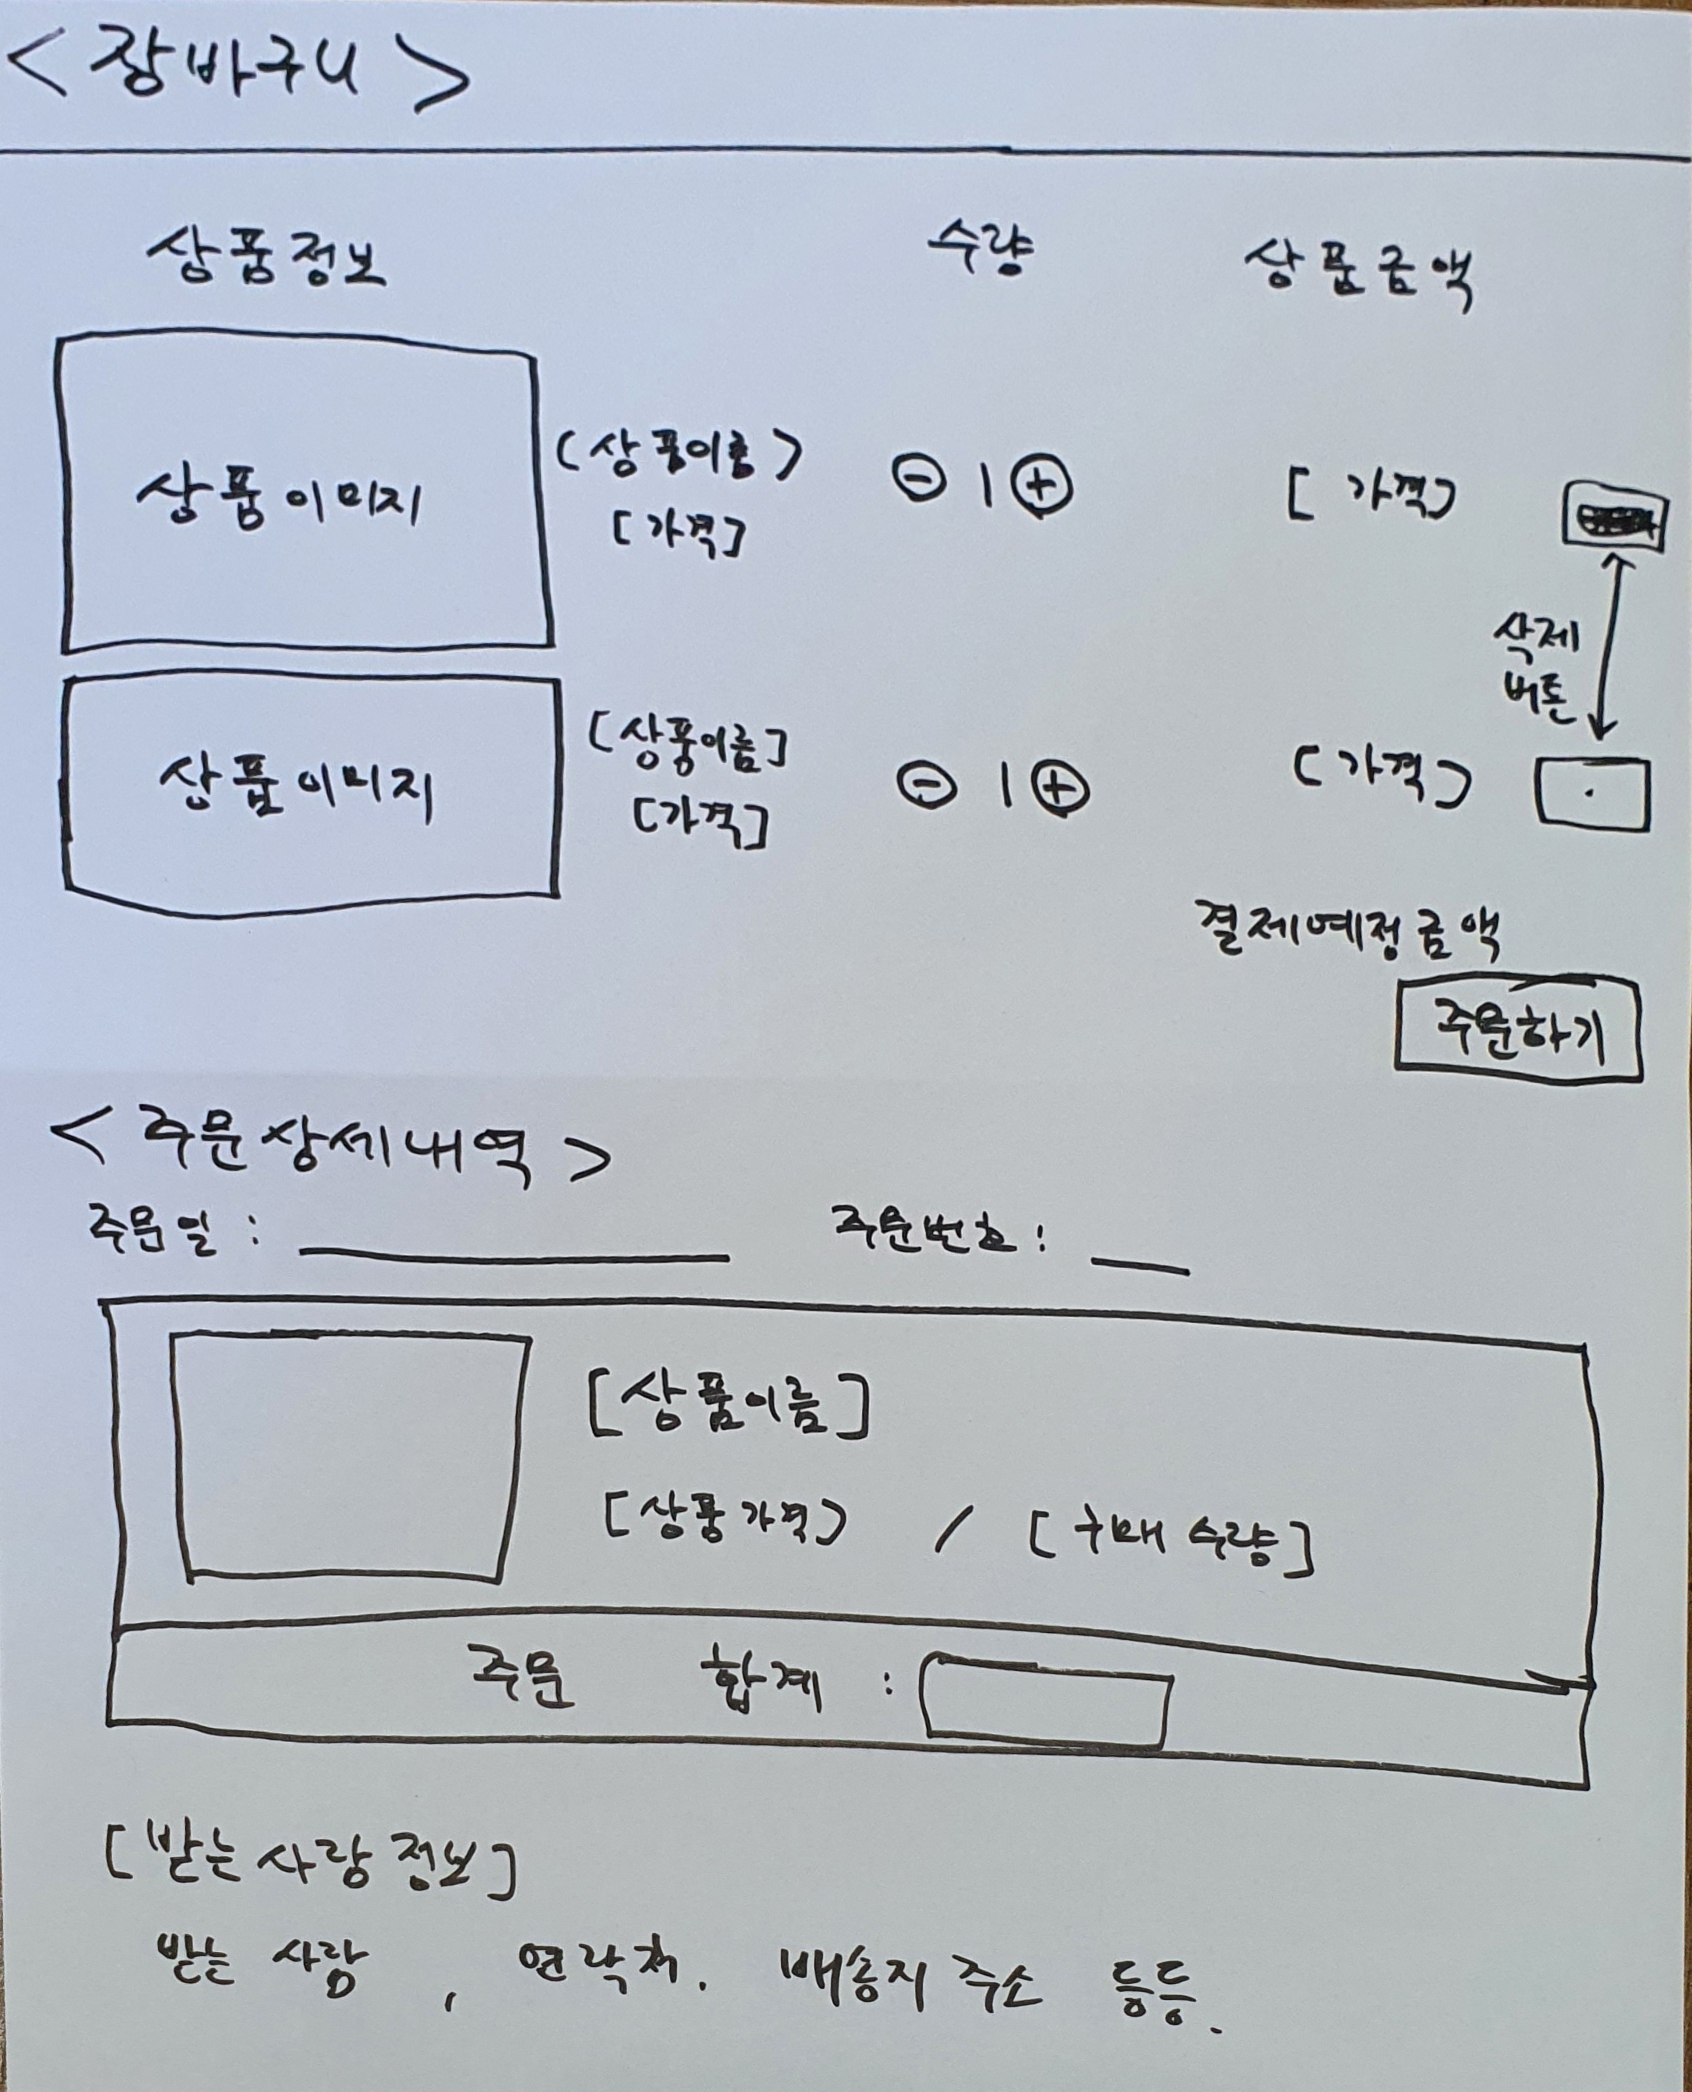 < 장바구니 >
상품정보 수량 상품금액
상품이미지 [상품이름] ⊖ 1 ⊕ [가격]
[가격]
삭제
버튼
상품이미지 [상품이름] ⊖ 1 ⊕ [가격]
[가격]
결제예정금액
주문하기
< 주문상세내역 >
주문일 : 주문번호 :
[상품이름]
[상품가격] / [구매 수량]
주문 합계 :
[받는사람정보]
받는 사람 , 연락처. 배송지 주소 등등.